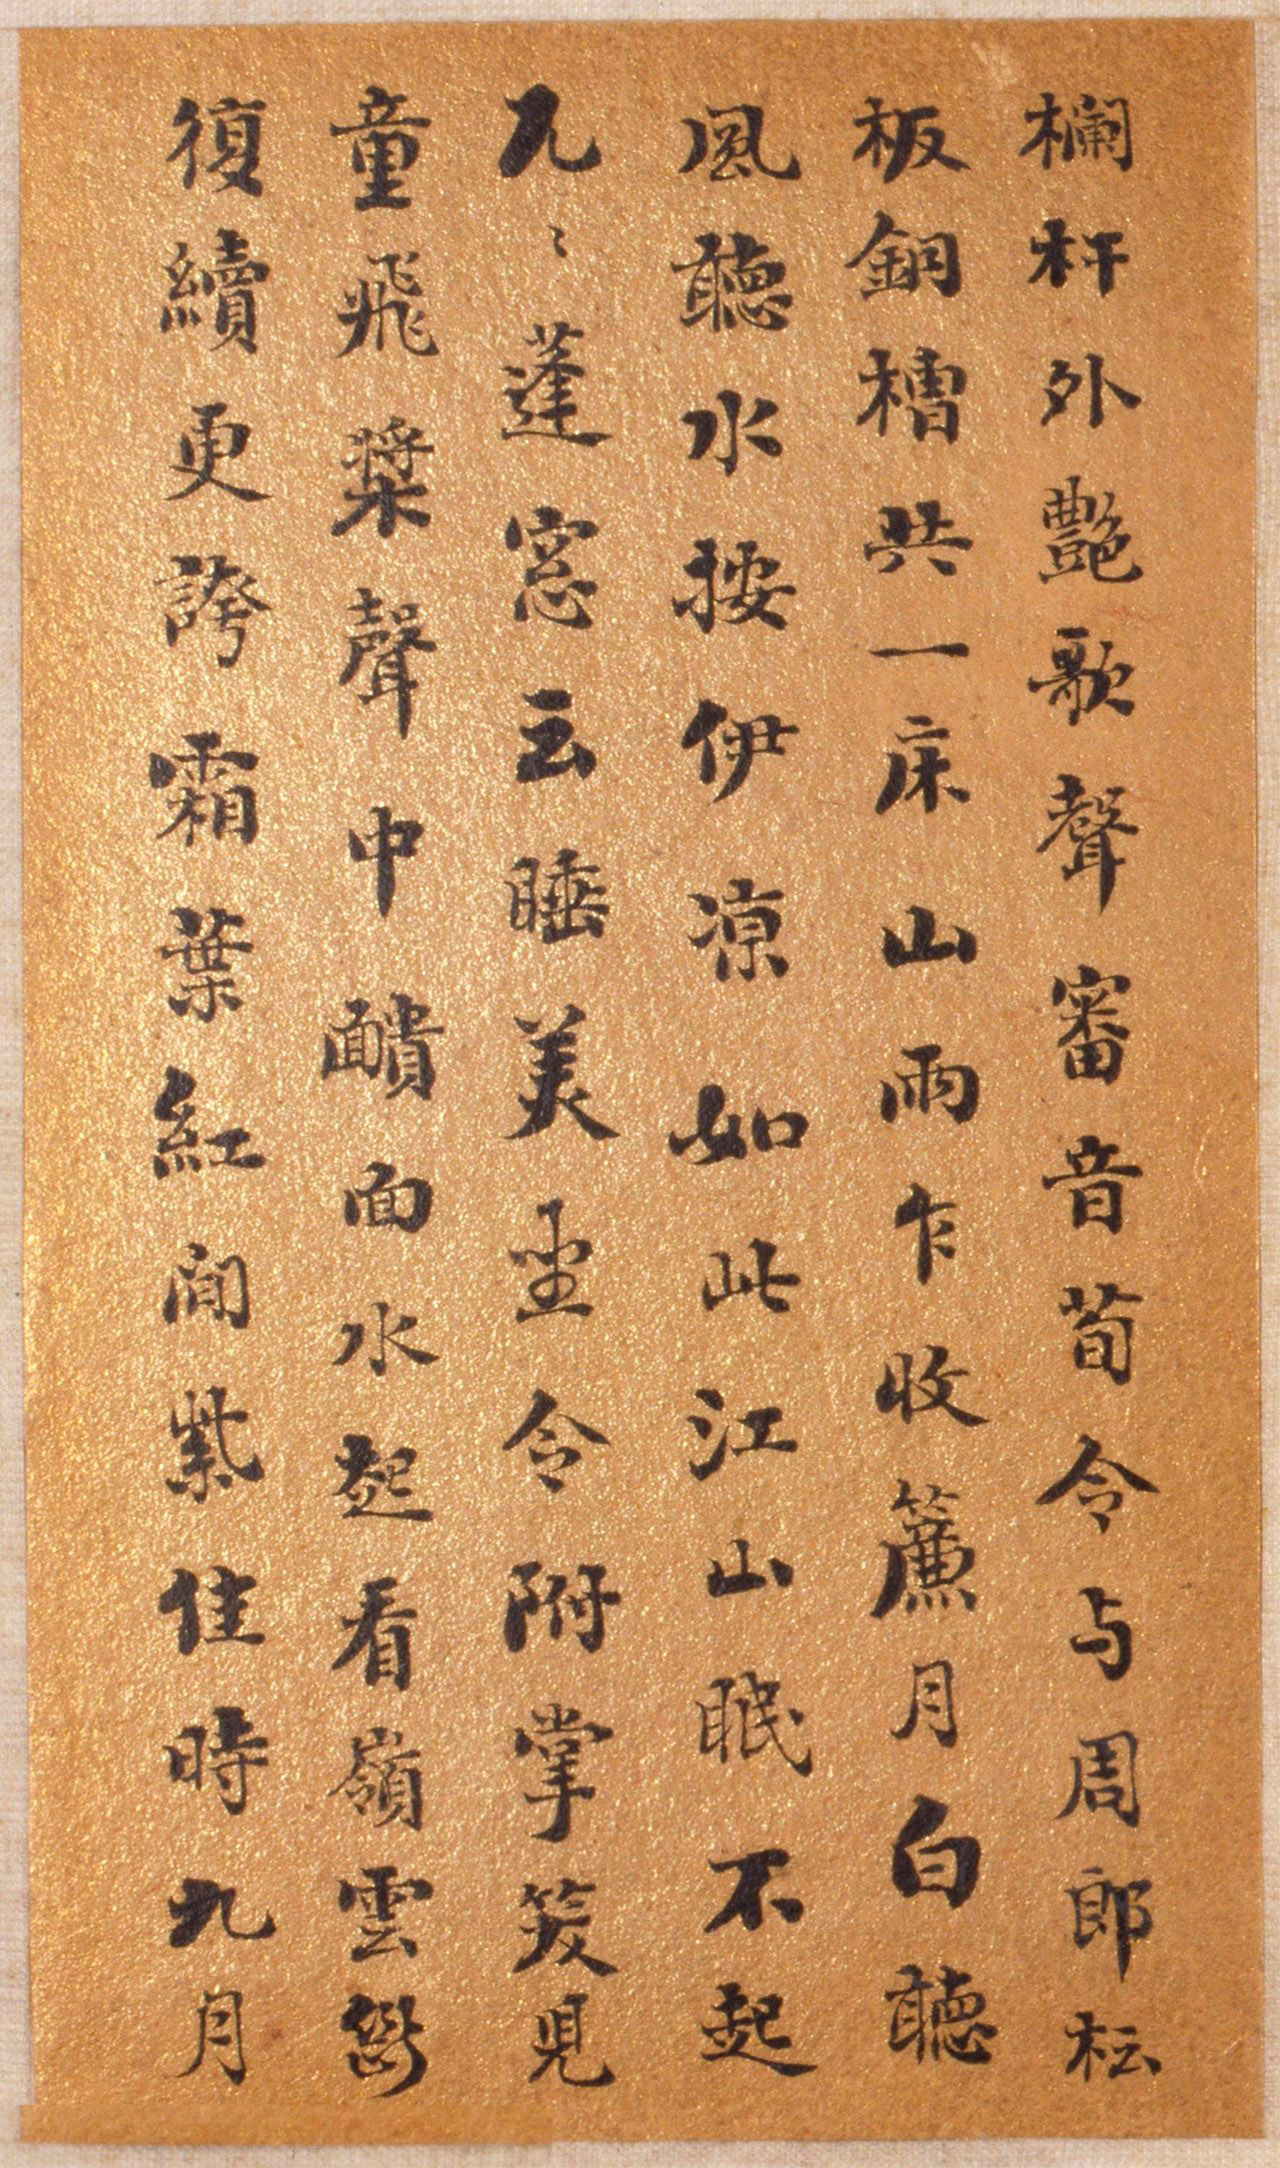 欄杆外艷歌聲審音荀令与周郎枟
板銅槽共一床山雨乍收簾月白聽
風聽水按伊凉如此江山眠不起
兀〻蓬窓云睡美坐令附掌笑見
童飛槳聲中靧面水起看嶺雲斷
復續更誇霜葉紅間紫佳時九月